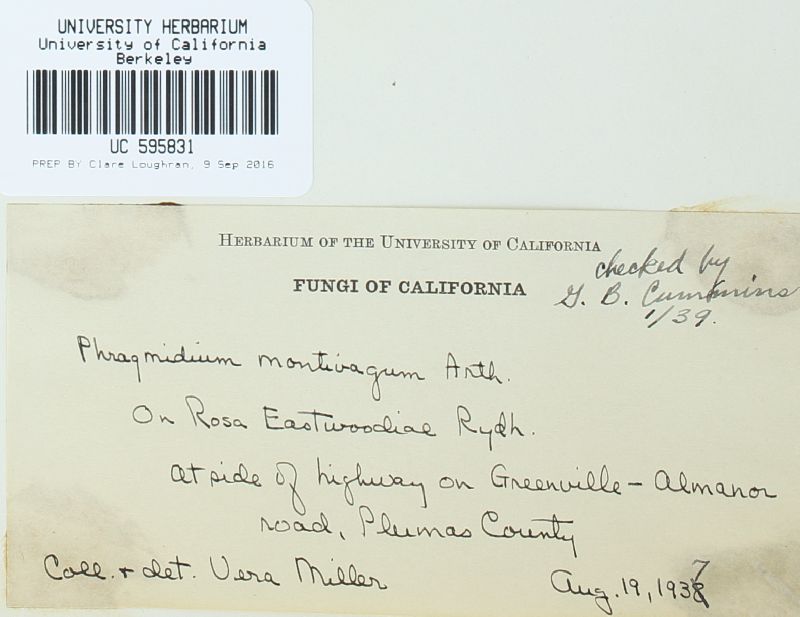 UNIVERSITY HERBARIUM
University of California
Berkeley
UC 595831
PREP BY Clare Loughran, 9 Sep 2016
HERBARIUM OF THE UNIVERSITY OF CALIFORNIA
FUNGI OF CALIFORNIA
checked by
G. B. Cummins
1/39.
Phragmidium montivagum Arth.
On Rosa Eastwoodiae Rydh.
At side of highway on Greenville - Almanor
road, Plumas County
Coll. + det. Vera Miller
Aug. 19, 1937